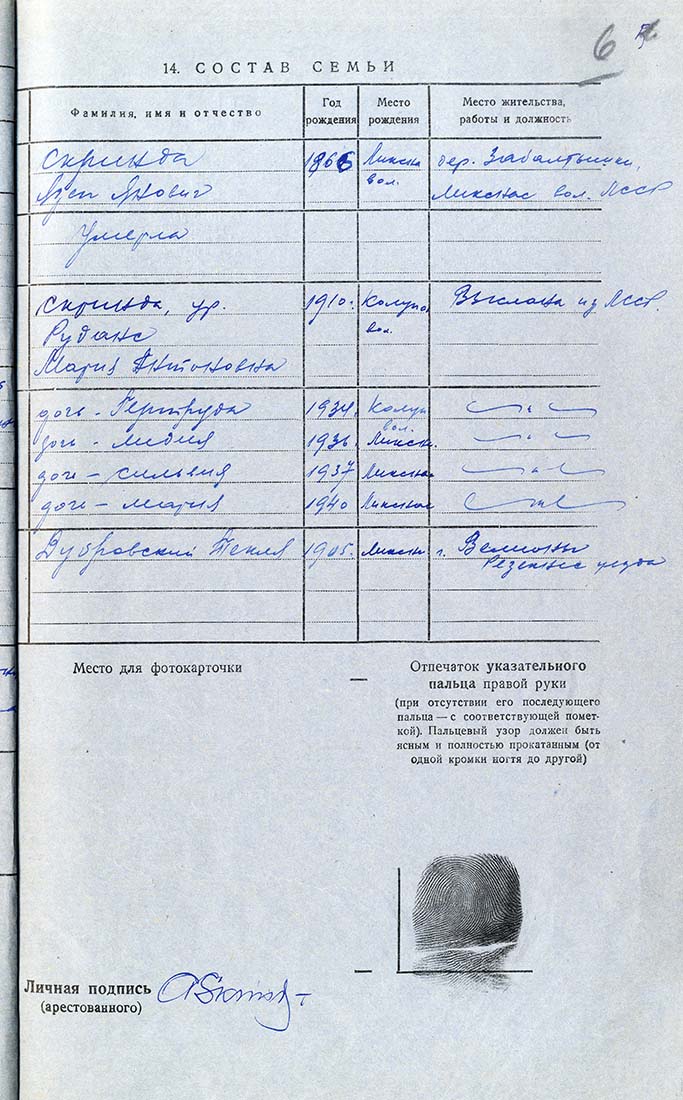 6
14. СОСТАВ СЕМЬИ
Фамилия, имя и отчество Год рождения Место рождения Место жительства, работы и должность
Скринда 1866 Ликсна дер. Забалтыники,
Язеп Янович вол. Ликснас вол. ЛССР
Умерла
Скринда, ур. 1910. Колупс Выслана из ЛССР.
Руданс вол.
Мария Антоновна
дочь - Гертруда 1934. Колуп вол.
дочь - Лидия 1936. Ликсн.
дочь - Сильвия 1937 Ликснас
дочь - Мария 1940 Ликснас
Дубровский Текля 1905. Ликсн г. Веллоны
Резекнес уезда
Место для фотокарточки
Отпечаток указательного
пальца правой руки
(при отсутствии его последующего
пальца — с соответствующей помет-
кой). Пальцевый узор должен быть
ясным и полностью прокатанным (от
одной кромки ногтя до другой)
Личная подпись
(арестованного)